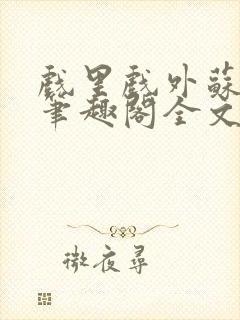 戲里戲外蘇
筆趣閣全文
微夜尋